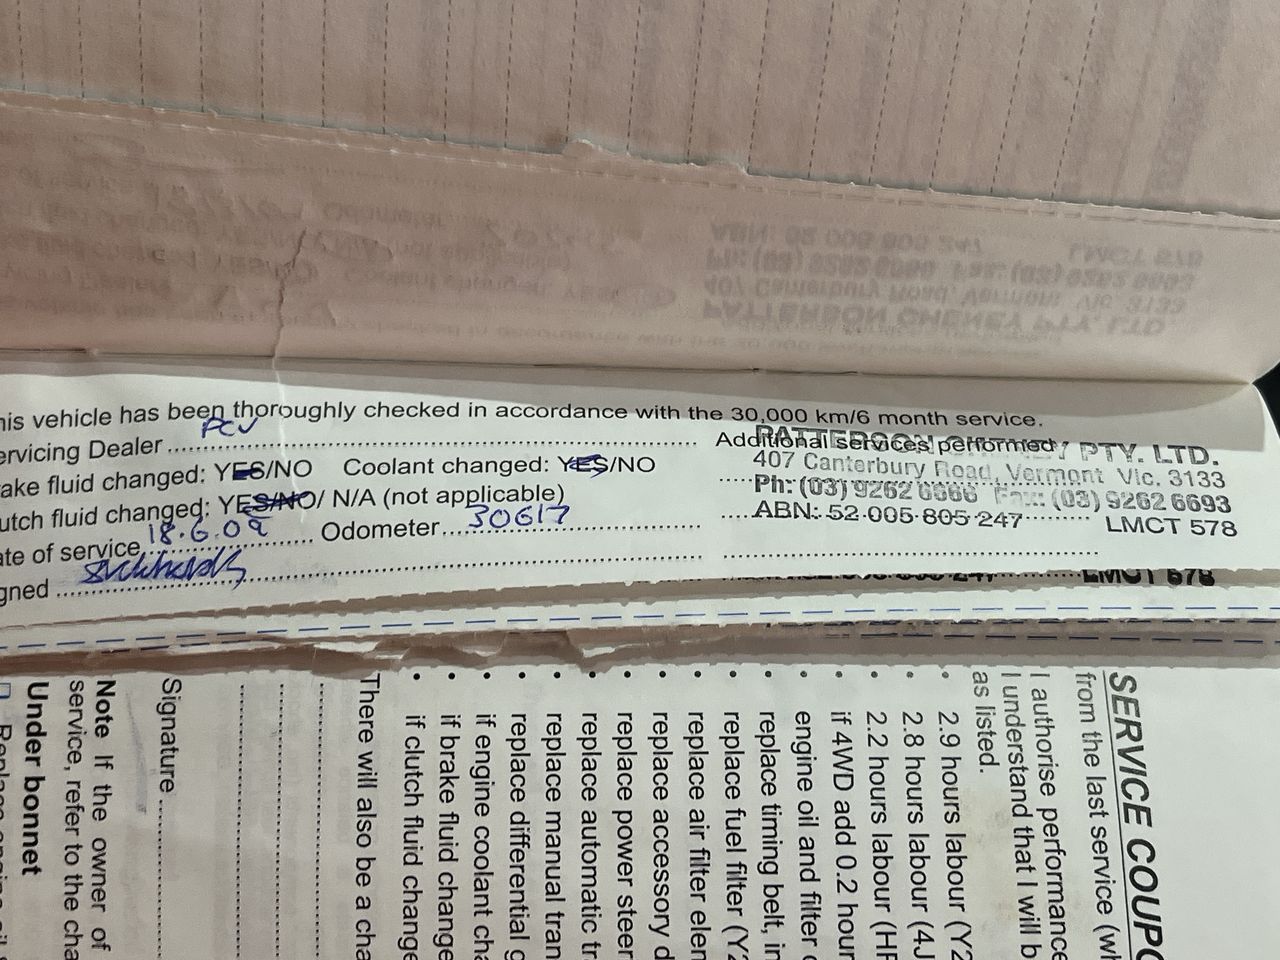 his vehicle has been thoroughly checked in accordance with the 30,000 km/6 month service.
ervicing Dealer PCV
Additional services performed
PATTERSON CHENEY PTY. LTD.
407 Canterbury Road, Vermont Vic. 3133
Ph: (03) 9262 6666 Fax: (03) 9262 6693
ABN: 52 005 805 247 LMCT 578
ake fluid changed: YES/NO Coolant changed: YES/NO
utch fluid changed: YES/NO/ N/A (not applicable)
ate of service 18.6.09 Odometer 30617
gned
LMCT 578
SERVICE COUPO
from the last service (wh
I authorise performance
I understand that I will b
as listed.
• 2.9 hours labour (Y2
• 2.8 hours labour (4J
• 2.2 hours labour (HF
• if 4WD add 0.2 hour
• engine oil and filter c
• replace timing belt, in
• replace fuel filter (Y2
• replace air filter elen
• replace accessory d
• replace power steer
• replace automatic tr
• replace manual tran
• replace differential g
• if engine coolant cha
• if brake fluid change
• if clutch fluid change
There will also be a cha
Signature
Note If the owner of
service, refer to the cha
Under bonnet